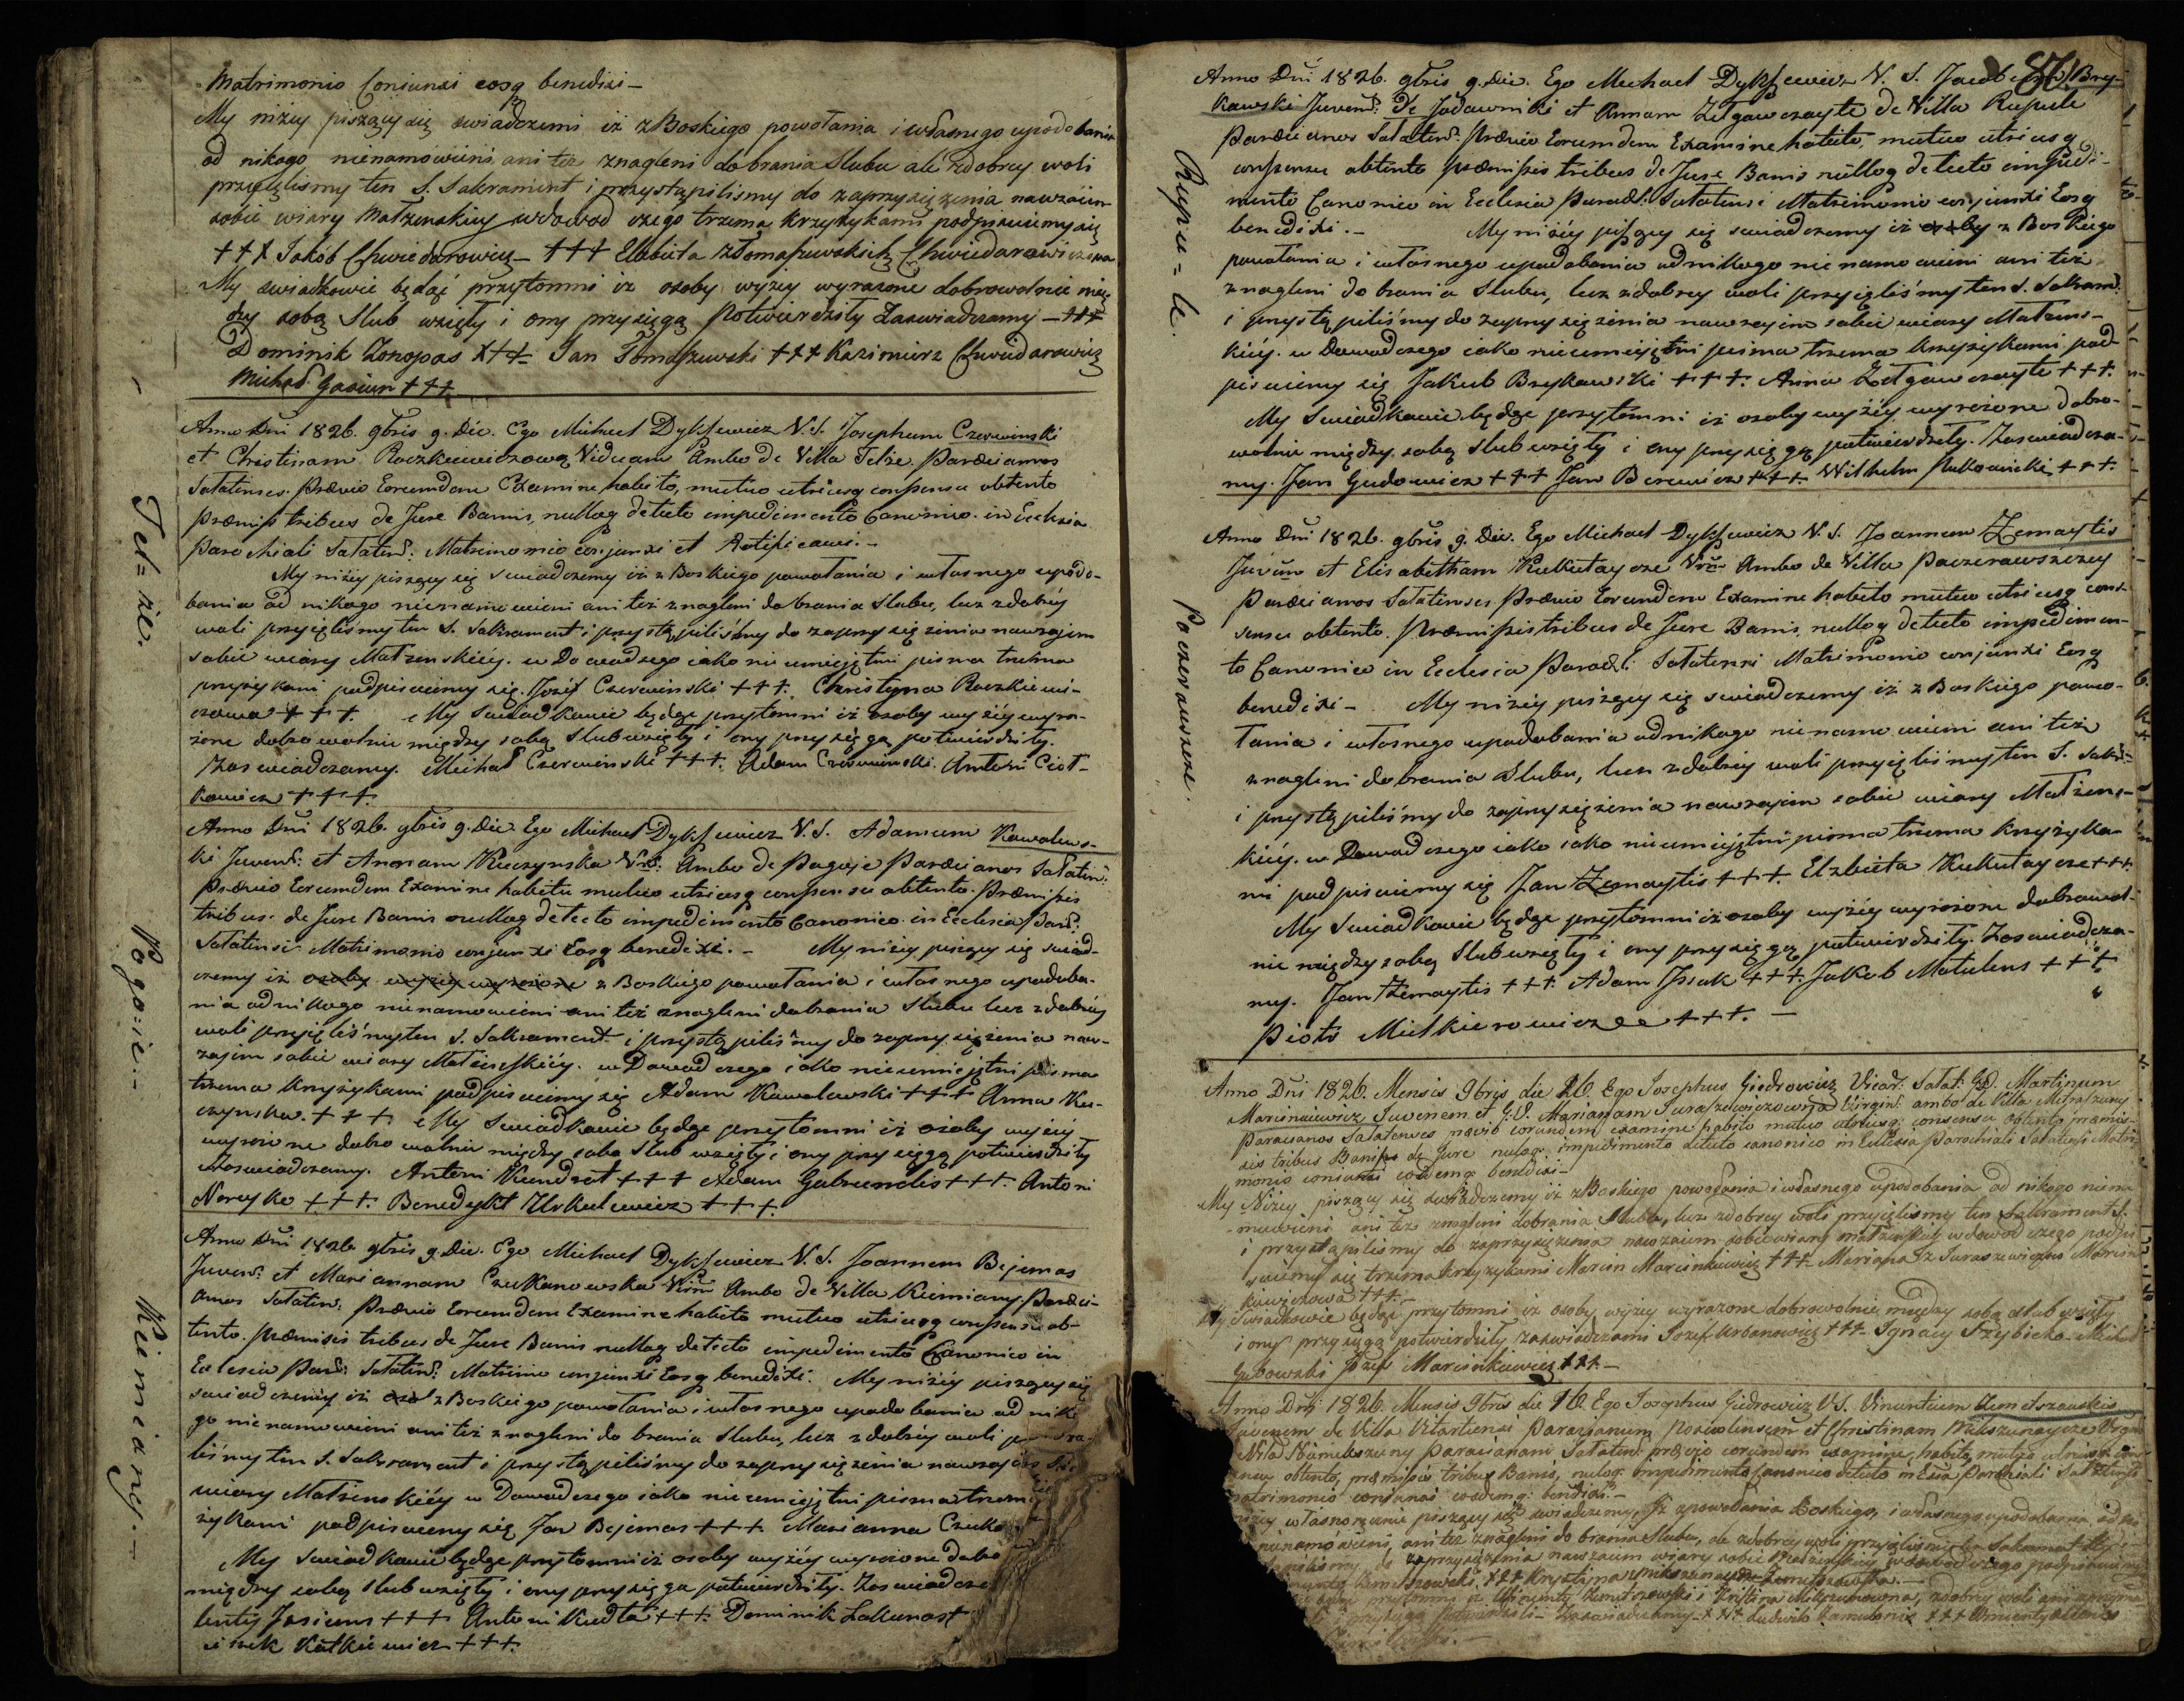 Matrimonio Coniunxi eosq benedixi –
My niżey piszący się swiadczemi iż z Boskiego powołania i własnego upodobania
od nikogo nienamówieni ani też znagleni do brania Slubu ale z dobrey woli
przyięlismy ten S. Sakrament i przystąpilismy do zaprzysiężenia nawzaiem
sobie wiary Małżenskiey w dowod czego trzema krzyżykami podpisuiemy się
+++ Jakób Chwiedarowicz – +++ Elżbieta z Tomaszewskich Chwiedarowiczowa
My swiadkowie będąć przytomni iż osoby wyżey wyrażone dobrowolnie mię
dzy sobą Slub wzięły i ony przysięgą Potwierdziły Zaswiadczamy – +++
Dominik Zonopas +++ Jan Tomaszewski +++ Kazimierz Chwiedarowicz
Michał Gasiun +++
Tel=że.
Anno Dni 1826. 9bris 9. Die. Ego Michael Dykszewicz V. S. Josephum Czerwinski
et Christinam Raczkiewiczową Viduam Ambo de Villa Telże. Parœcianos
Satatenses. Prævio Eorumdem Examine habito, mutuo utriusq consensu obtento
præmiss tribus de Jure Bannis, nulloq detecto impedimento Canonico. in Ecclesia
Parochiali Satatens: Matrimonio conjunxi et Ratificavi. –
My niżey piszący się swiadczemy iż z Boskiego powołania i własnego upodo-
bania od nikogo nienamowieni ani też znagleni do brania Slubu, lecz z dobréy
woli przyięliśmy ten S. Sakrament i przystąpiliśmy do zaprzysiężenia nawzajem
sobie wiary Małżenskiéy. w Dowod czego iako nieumiejętni pisma trzema
krzyżykami podpisuiemy się. Józef Czerwinski +++. Christyna Raczkiewi-
czowa +++. My Swiadkowie będąc przytomni iż osoby wyżéy wyra-
żone dobrowolnie między sobą Slub wzięły i ony przysięgą potwierdziły.
Zaswiadczamy. Michał Czerwinski +++. Adam Czerwinski. Antoni Ciot-
kowicz +++.
Pogo:ie. –
Anno Dni 1826. 9bris 9. Die. Ego Michael Dykszewicz V. S. Adamum Kawalews-
ki Juvens: et Annam Kuczynska Vrs: Ambo de Pagoje Parœcianos Satatens:
Prævio Eorumdem Examine habito mutuo utriusq consensu obtento. Præmissis
tribus. de Jure Bannis nulloq detecto impedimento Canonico. in Ecclesia Par:
Satatensi Matrimonio conjunxi Eosq benedixi. – My niżey piszący się swiad-
czemy iż osoby wyżey wyrażone z Boskiego powołania i własnego upodoba-
nia od nikogo nienamowieni ani też znagleni do brania Slubu lecz z dobréy
woli przyięliśmy ten S. Sakrament i przystąpiliśmy do zaprzysiężenia naw-
zajem sobie wiary Małżenskiéy. w Dowod czego iako nieumiejętni pisma
trzema krzyżykami podpisuiemy się Adam Kawalewski +++ Anna Ku-
czynska. +++. My Swiadkowie będąc przytomni iż osoby wyżéy
wyrażone dobrowolnie między sobą Slub wzięły i ony przysięgą potwierdziły
Zaswiadczamy. Antoni Kundrot +++ Adam Gabrunelis +++. Antoni
Noreyko +++. Benedykt Urkulewicz +++.
Kiemiany. –
Anno Dni 1826. 9bris 9. Die. Ego Michael Dykszewicz V. S. Joannem Bejemas
Juvens: et Mariannam Czukanowska Vrsm Ambo de Villa Kiemiany, Parœci-
anos Satatens: Prævio Eorumdem Examine habito mutuo utriusq consensu ob-
tento. Præmissis tribus de Jure Bannis nulloq detecto impedimento Canonico in
Ecclesia Par: Satatens: Matrimo conjunxi Eosq benedixi. My niżéy piszący się
swiadczemy iż z Boskiego powołania i własnego upodobania od niko
go nienamowieni ani też znagleni do brania Slubu, lecz z dobréy woli
liśmy ten S. Sakrament i przystąpiliśmy do zaprzysiężenia nawzajem
wiary Małżenskiéy w Dowod czego iako nieumiejętni pisma trzema
żykami podpisuiemy się Jan Bejemas +++ Marianna Czuka
My Swiadkowie będąc przytomni iż osoby wyżéy wyrażone dobro
między sobą slub wzięły i ony przysięgą potwierdziły. Zaswiadcza
lenty Jasiuns +++ Antoni Kudła +++. Dominik Lakunast
Katkiewicz +++.
87.
Rupie=le.
Anno Dni 1826. 9bris 9. Die. Ego Michael Dykszewicz V. S. Jacobum Bry-
kawski Juvens: de Jodawniki et Annam Zełgawczayte de Villa Rupiele
Parœcianos Satatens: Prævio Eorumdem Examine habito, mutuo utriusq
consensu obtento præmissis tribus de Jure Bannis nulloq detecto impedi-
mento Canonico in Ecclesia Paroch: Satatensi Matrimonio conjunxi Eosq
benedixi. – My niżéy piszący się swiadczemy iż z Boskiego
powołania i własnego upodobania od nikogo nienamowieni ani też
znagleni do brania Slubu, lecz z dobrey woli przyięliśmy ten S. Sakram:
i przystąpiliśmy do zaprzysiężenia nawzajem sobie wiary Małżens-
kiéy. w Dowod czego iako nieumiejętni pisma trzema krzyżykami pod-
pisuiemy się Jakub Brykawski +++. Anna Zełgawczayte +++.
My Swiadkowie będąc przytomni iż osoby wyżéy wyrażone dobro-
wolnie między sobą slub wzięły i ony przysięgą potwierdziły. Zaswiadcza-
my. Jan Gudowicz +++ Jan Berewicz +++. Wilhelm Rutkowicki +++.
Poczerawszcze.
Anno Dni 1826. 9bris 9. Die. Ego Michael Dykszewicz V. S. Joannem Zemaytis
Juvenm et Elisabetham Kukutaycze Vrsm Ambo de Villa Poczerawszczey
Parœcianos Satatenses Prævio Eorundem Examine habito mutuo utriusq con-
sensu obtento. Præmissis tribus de Jure Bannis, nulloq detecto impedimen-
to Canonico in Ecclesia Paroch: Satatensi Matrimonio conjunxi Eosq
benedixi – My niżéy piszący się swiadczemy iż z Boskiego powo-
łania i własnego upodobania od nikogo nienamowieni ani też
znagleni do brania Slubu, lecz z dobréy woli przyięliśmy ten S. Sakr:
i przystąpiliśmy do zaprzysiężenia nawzajem sobie wiary Małżens-
kiéy. w Dowod czego iako iako nieumiejętni pisma trzema krzyżyka-
mi podpisuiemy się Jan Zemaytis +++. Elzbieta Kukutaycze +++.
My Swiadkowie będąc przytomni iż osoby wyżéy wyrażone dobrowol-
nie między sobą Slub wzięły i ony przysięgą potwierdziły. Zaswiadcza-
my. Jan Zemaytis +++. Adam Jssak +++. Jakob Matulens +++
Piotr Mickierowicz +++. –
Anno Dni 1826. Mensis 9bris die 26. Ego Josephus Giedrowicz Vicar: Satat: GD. Martinum
Marcinkiewicz Juvenem et G:D. Mariannam Juraszewiczowna Virgin: ambo de Villa Mitraszuny
Paracianos Satatenses prævio eorundem examine habito mutuo utriusq: consensu obtento præmis-
sis tribus Bannis de Jure nuloq: impedimento detecto canonico in Ecclesia Parochiali Satatensi Matri-
monio coniunxi eosdemq benedixi –
My Niżey piszący się swiadczemy iż z Boskiego powołania i własnego upodobania od nikogo niena
mówieni ani też znagleni do brania Slubu, lecz z dobrey woli przyięlismy ten Sakrament S.
i przystąpilismy do zaprzysiężenia nawzaiem sobie wiary małżenskiey w dowod czego podpi
suiemy się trzema krzyżykami Marcin Marcinkiewicz +++ Mariana z Juraszewiczow Marcin
kiewiczowa +++. –
My Swiadkowie będąć przytomni iż osoby wyżey wyrażone dobrowolnie między sobą slub wzięły
i ony przysięgą potwierdziły zaswiadczami Jozéf Urbanowicz +++. Ignacy Szybicko. Michał
Gubowski Józef Marcinkiewicz +++. –
Anno Dni 1826. Mensis 9bris die 16. Ego Josephus Giedrowicz V S. Vincentium Kemetszauskis
Juvenem de Villa Vitartienai Paracianum et Christinam Mikszunaycze Virgin
Villa Paracianam Satatens: prævio eorundem examine habito, mutuo utriusq: con
sensu obtento, præmissis tribus Bannis, nuloq: impedimento Canonico detecto in Ecca Parochiali Satatensi
matrimonio coniunxi eosdemq: benedixi. –
własnoręcznie piszący się swiadczemy, Iż z powołania Boskiego, i własnego upodobania, od ni
nienamówieni, ani też znagleni do brania Slubu, ale z dobrey woli przyięlismy ten Sakrament S.
zaprzysiężenia nawzaiem wiary sobie czego podpisuiemy
Kemetszowski. +++ Krystyna
przytomni iż Wincenty Kemetszowski i Kristina z dobrey woli
przysięgą Potwierdzili – Zaswiadczemy. +++ Ludwik +++ Wincenty